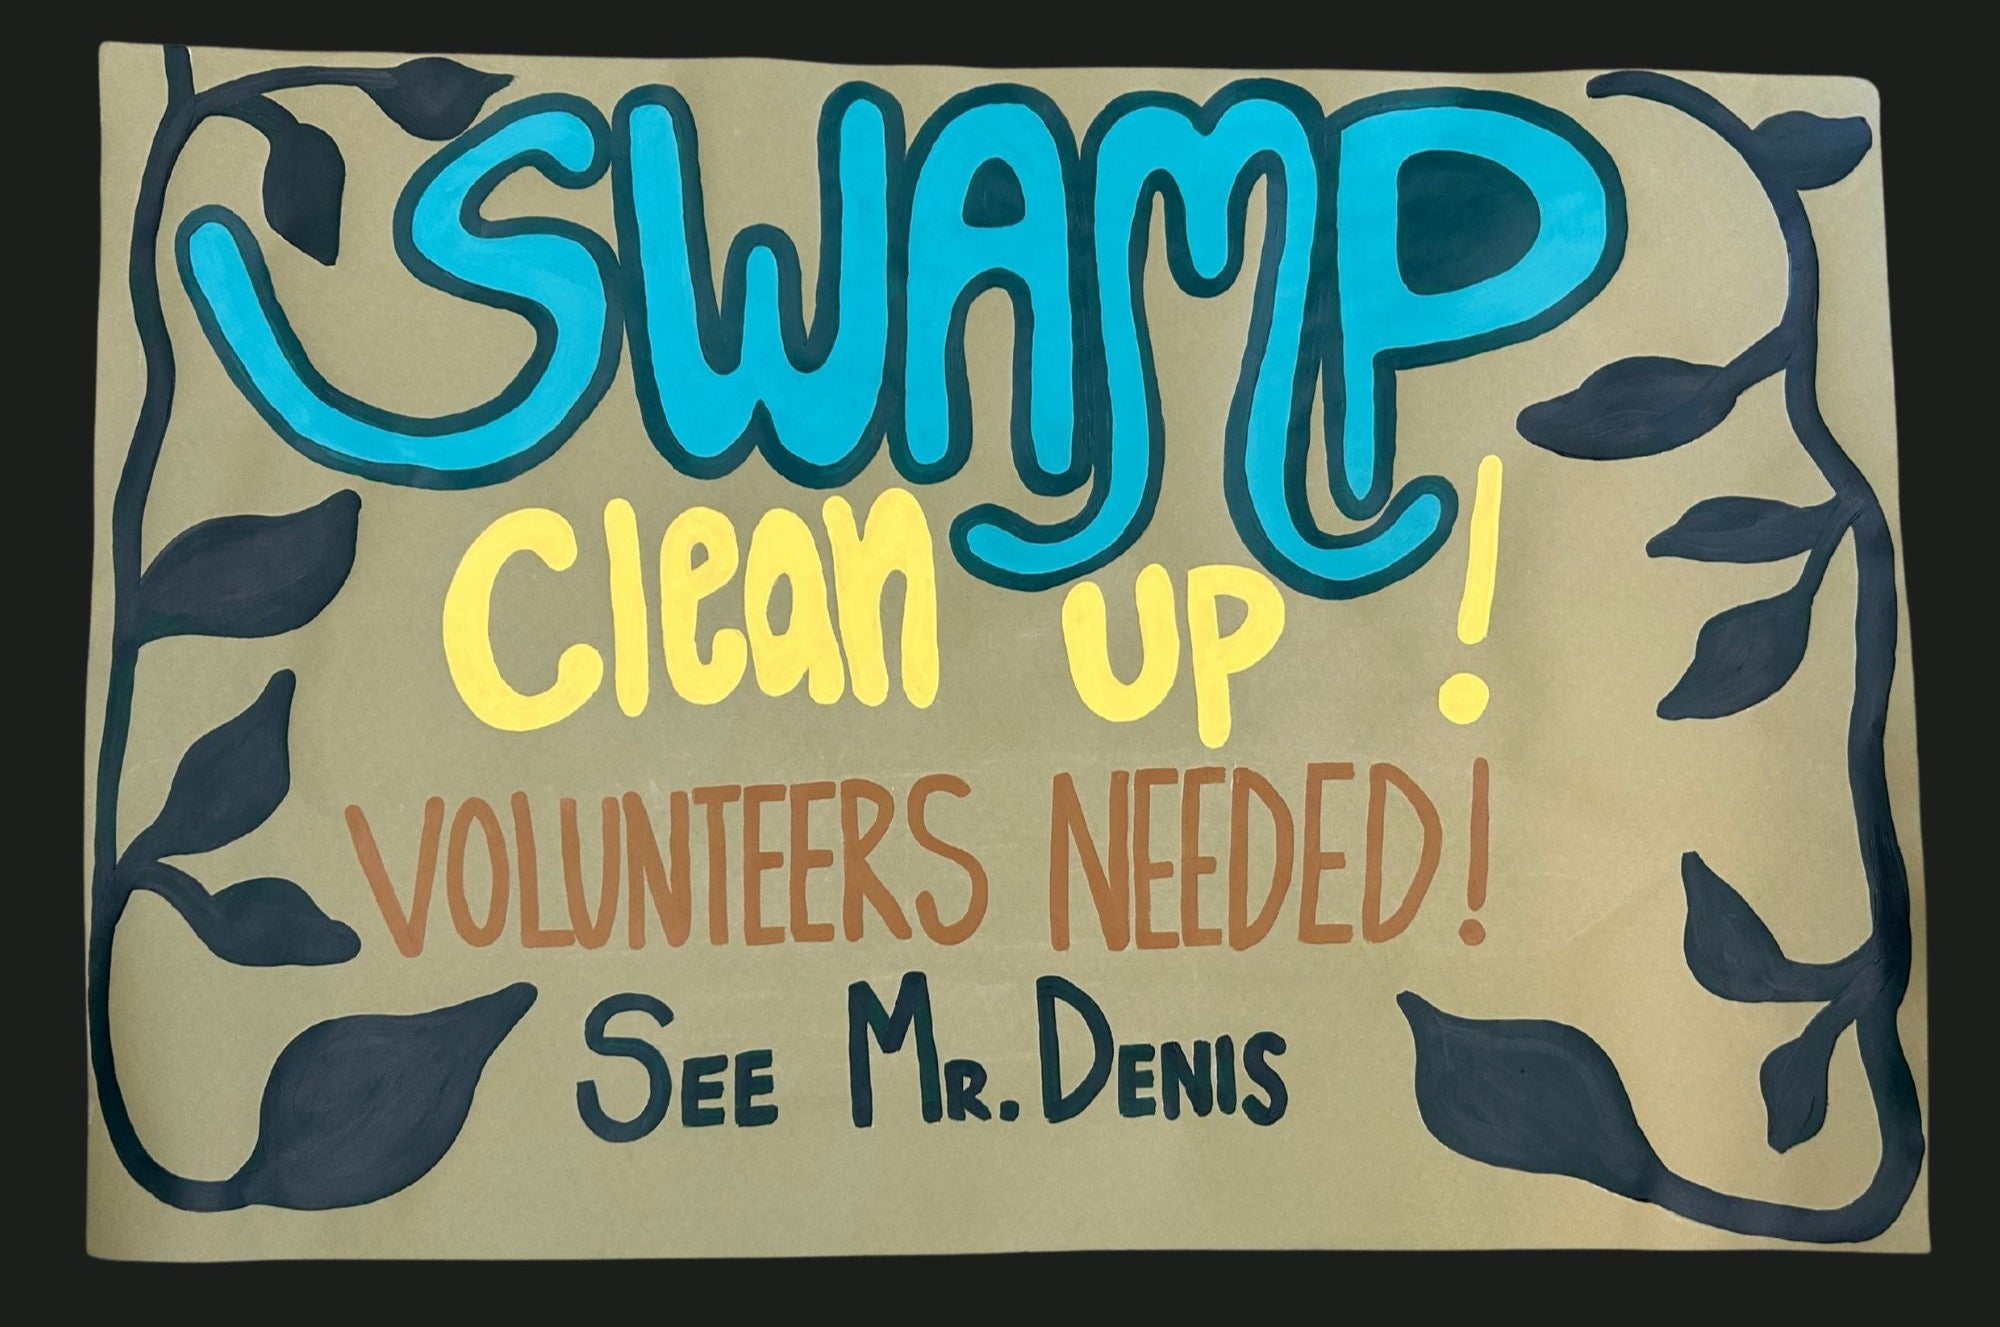 SWAMP
Clean up!
VOLUNTEERS NEEDED!
SEE MR. DENIS